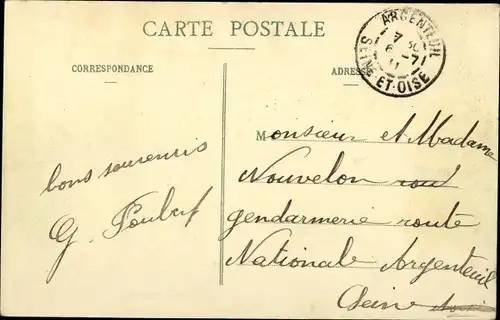 CARTE POSTALE
CORRESPONDANCE
ADRESSE
ARGENTEUIL
SEINE-ET-OISE
bons souvenirs
Monsieur et Madame
Nouvelon
gendarmerie route
Nationale Argenteuil
Seine